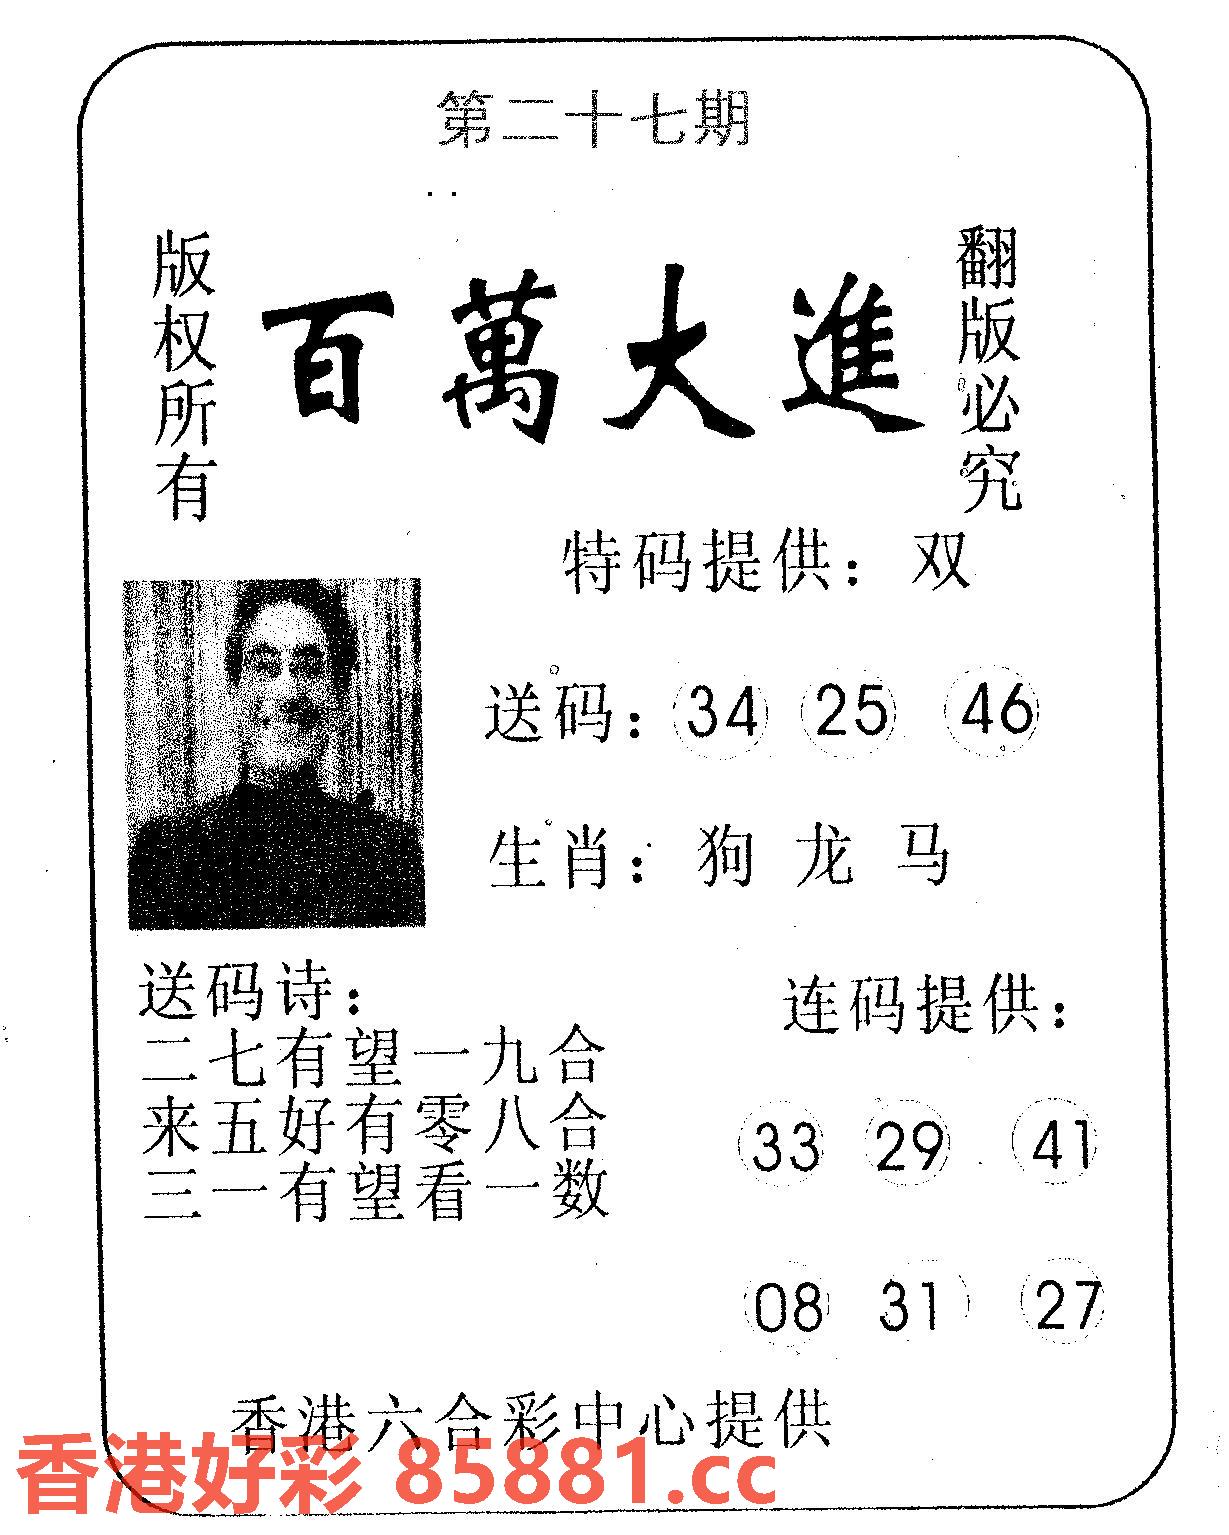 第二十七期
版权所有
百萬大進
翻版必究
特码提供：双
送码：34 25 46
生肖：狗 龙 马
送码诗：
二七有望一九合
来五好有零八合
三一有望看一数
连码提供：
33 29 41
08 31 27
香港六合彩中心提供
香港好彩 85881.cc